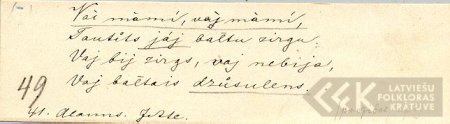 Vai māmi, vaj māmi,
Tautīts jāj baltu zirgu:
Vaj bij zirgs, vaj nebija,
Vaj baltais dzūsulens.
49
41. Alanns.
LATVIEŠU
FOLKLORAS
KRĀTUVE